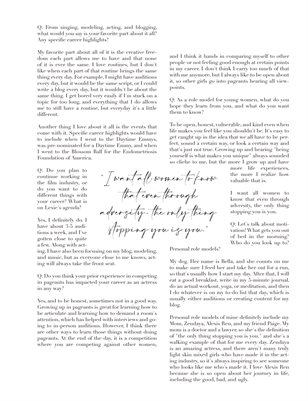 Q: From singing, modeling, acting, and blogging,
what would you say is your favorite part about it all?
Any specific career highlights?
My favorite part about all of it is the creative free-
dom each part allows me to have and that none
of it is ever the same. I love routines, but I don't
like when each part of that routine brings the same
thing every day. For example, I might have auditions
every day, but it would be the same script, or I could
write a blog every day, but it wouldn't be about the
same thing. I get bored very easily if I'm stuck on a
topic for too long, and everything that I do allows
me to still have a routine, but everyday it's a little
different.
Another thing I love about it all is the events that
come with it. Specific career highlights would have
to include when I went to the Daytime Emmys,
was pre-nominated for a Daytime Emmy, and when
I went to the Blossom Ball for the Endometriosis
Foundation of America.
Q: Do you plan to
continue working in
the film industry, or
do you want to do
different things with
your career? What is
on Lexie's agenda?
Yes, I definitely do. I
have about 3-5 audi-
tions a week, and I've
gotten close to quite
a few. Along with act-
ing, I have also been focusing on my blog, modeling,
and music, but as everyone close to me knows, act-
ing will always take the front seat.
Q: Do you think your prior experience in competing
in pageants has impacted your career as an actress
in any way?
Yes, and to be honest, sometimes not in a good way.
Growing up in pageants is great for learning how to
be articulate and learning how to demand a room's
attention, which has helped with interviews and go-
ing to in-person auditions. However, I think there
are other ways to learn those things without doing
pageants. At the end of the day, it is a competition
where you are competing against other women,
"I want all women to know
that even through
adversity, the only thing
stopping you is you."
and I think it hands in comparing myself to other
people or not feeling good enough at certain points
in my career. I don't think I carry too much of that
with me anymore, but I always like to be open about
it, so other girls go into pageants hearing all view-
points.
Q: As a role model for young women, what do you
hope they learn from you, and what do you want
them to know?
To be open, honest, vulnerable, and kind even when
life makes you feel like you shouldn't be. It's easy to
get caught up in the idea that we all have to be per-
fect, sound a certain way, or look a certain way and
that's just not true. Growing up and hearing "being
yourself is what makes you unique" always sounded
so cliché to me, but the more I grew up and have
more life experiences,
the more I realize how
valuable that is.
I want all women to
know that even through
adversity, the only thing
stopping you is you.
Q: Let's talk about moti-
vation! What gets you out
of bed in the morning?
Who do you look up to?
Personal role models?
My dog. Her name is Bella, and she counts on me
to make sure I feed her and take her out for a run,
so that's usually how I start my day. After that, I will
eat a good breakfast, write in my 5-minute journal,
do an actual workout, yoga, or meditation, and then
I do whatever is on my to-do list that day, which is
usually either auditions or creating content for my
blog.
Personal role models of mine definitely include my
Mom, Zendaya, Alexis Ren, and my friend Paige. My
mom is a doctor and a lawyer, so she's the definition
of "the only thing stopping you is you," and she's a
walking example of that for me every day. Zendaya
is an amazing actress, and there aren't many truly
light skin mixed girls who have made it in the act-
ing industry, so it's always inspiring to see someone
who looks like me who's made it. I love Alexis Ren
because she is so open about her journey in life,
including the good, bad, and ugly.